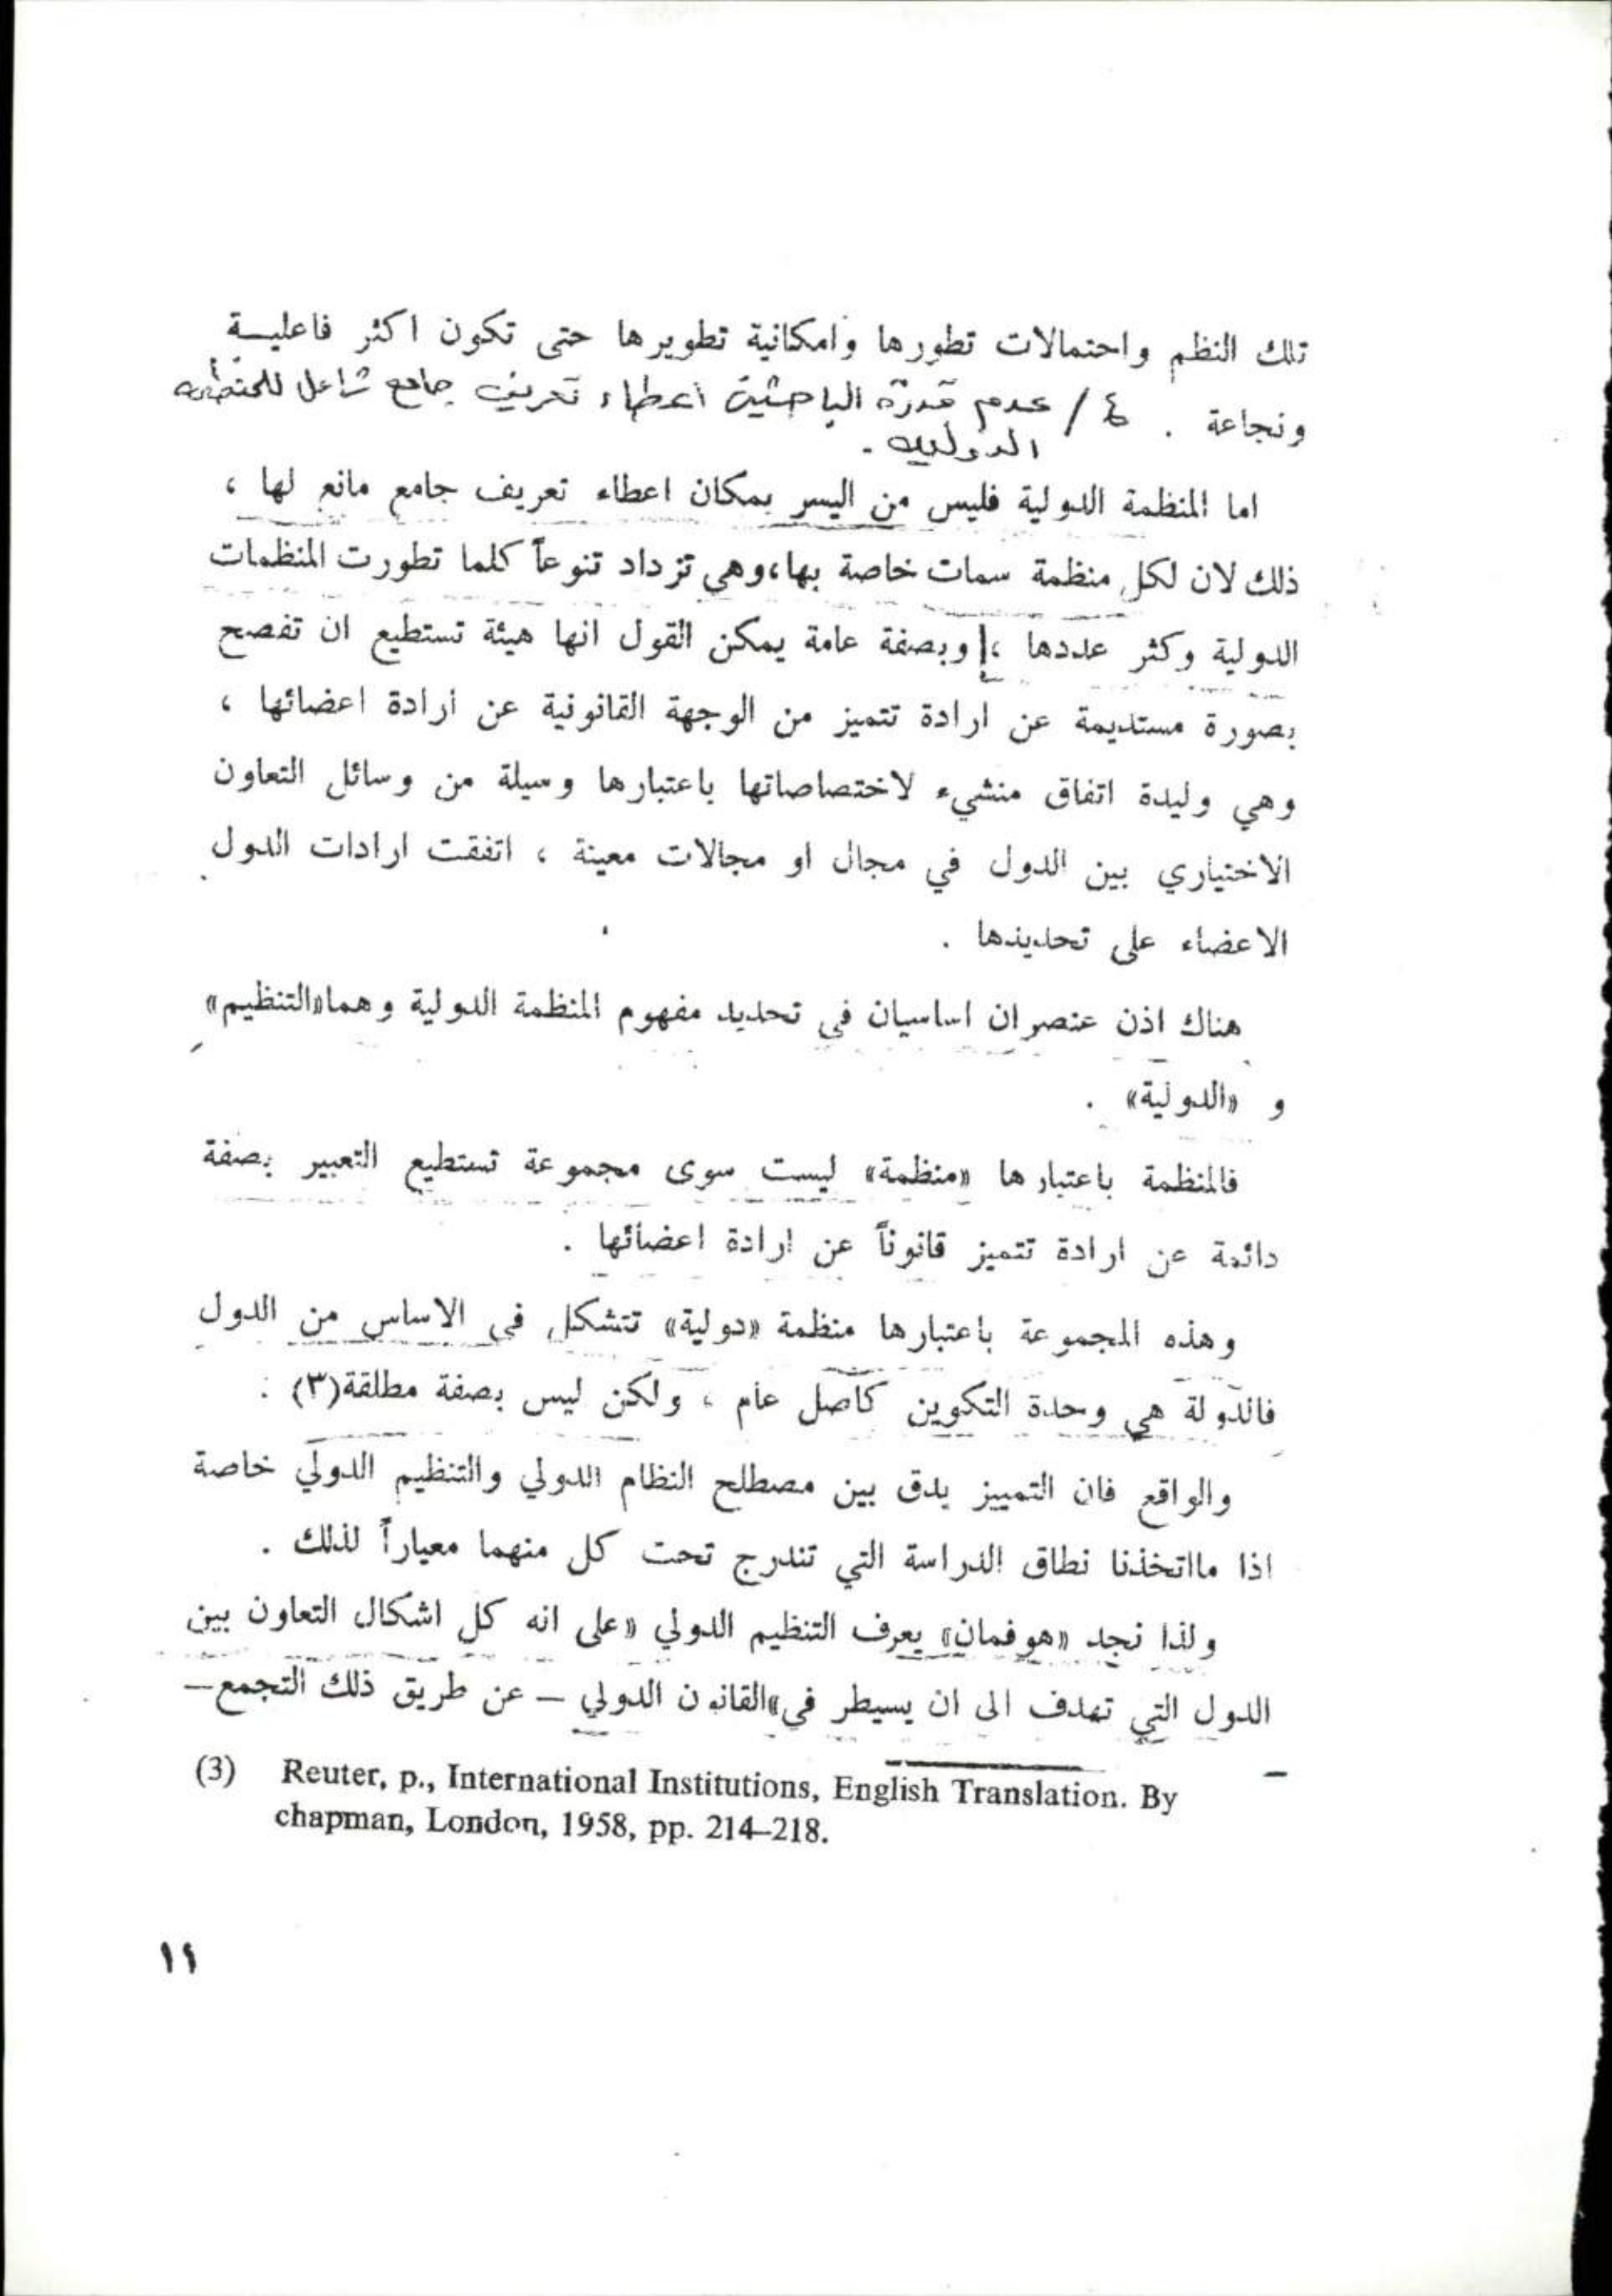 تلك النظم واحتمالات تطورها وامكانية تطويرها حتى تكون اكثر فاعليـــة
ونجاعة . ٤ / عدم قدرة الباحثين اعطاء تعريف جامع شامل للمنظمه
الدوليه .
اما المنظمة الدولية فليس من اليسر بمكان اعطاء تعريف جامع مانع لها ،
ذلك لان لكل منظمة سمات خاصة بها،وهي تزداد تنوعاً كلما تطورت المنظمات
الدولية وكثر عددها ، وبصفة عامة يمكن القول انها هيئة تستطيع ان تفصح
بصورة مستديمة عن ارادة تتميز من الوجهة القانونية عن ارادة اعضائها ،
وهي وليدة اتفاق منشيء لاختصاصاتها باعتبارها وسيلة من وسائل التعاون
الاختياري بين الدول في مجال او مجالات معينة ، اتفقت ارادات الدول
الاعضاء على تحديدها .
هناك اذن عنصران اساسيان في تحديد مفهوم المنظمة الدولية وهما«التنظيم»
و «الدولية» .
فالمنظمة باعتبارها «منظمة» ليست سوى مجموعة تستطيع التعبير بصفة
دائمة عن ارادة تتميز قانوناً عن ارادة اعضائها .
وهذه المجموعة باعتبارها منظمة «دولية» تتشكل في الاساس من الدول
فالدولة هي وحدة التكوين كأصل عام ، ولكن ليس بصفة مطلقة(٣) .
والواقع فان التمييز يدق بين مصطلح النظام الدولي والتنظيم الدولي خاصة
اذا مااتخذنا نطاق الدراسة التي تندرج تحت كل منهما معياراً لذلك .
ولذا نجد «هوفمان» يعرف التنظيم الدولي «على انه كل اشكال التعاون بين
الدول التي تهدف الى ان يسيطر في»القانون الدولي – عن طريق ذلك التجمع–
(3) Reuter, p., International Institutions, English Translation. By
chapman, London, 1958, pp. 214–218.
١١